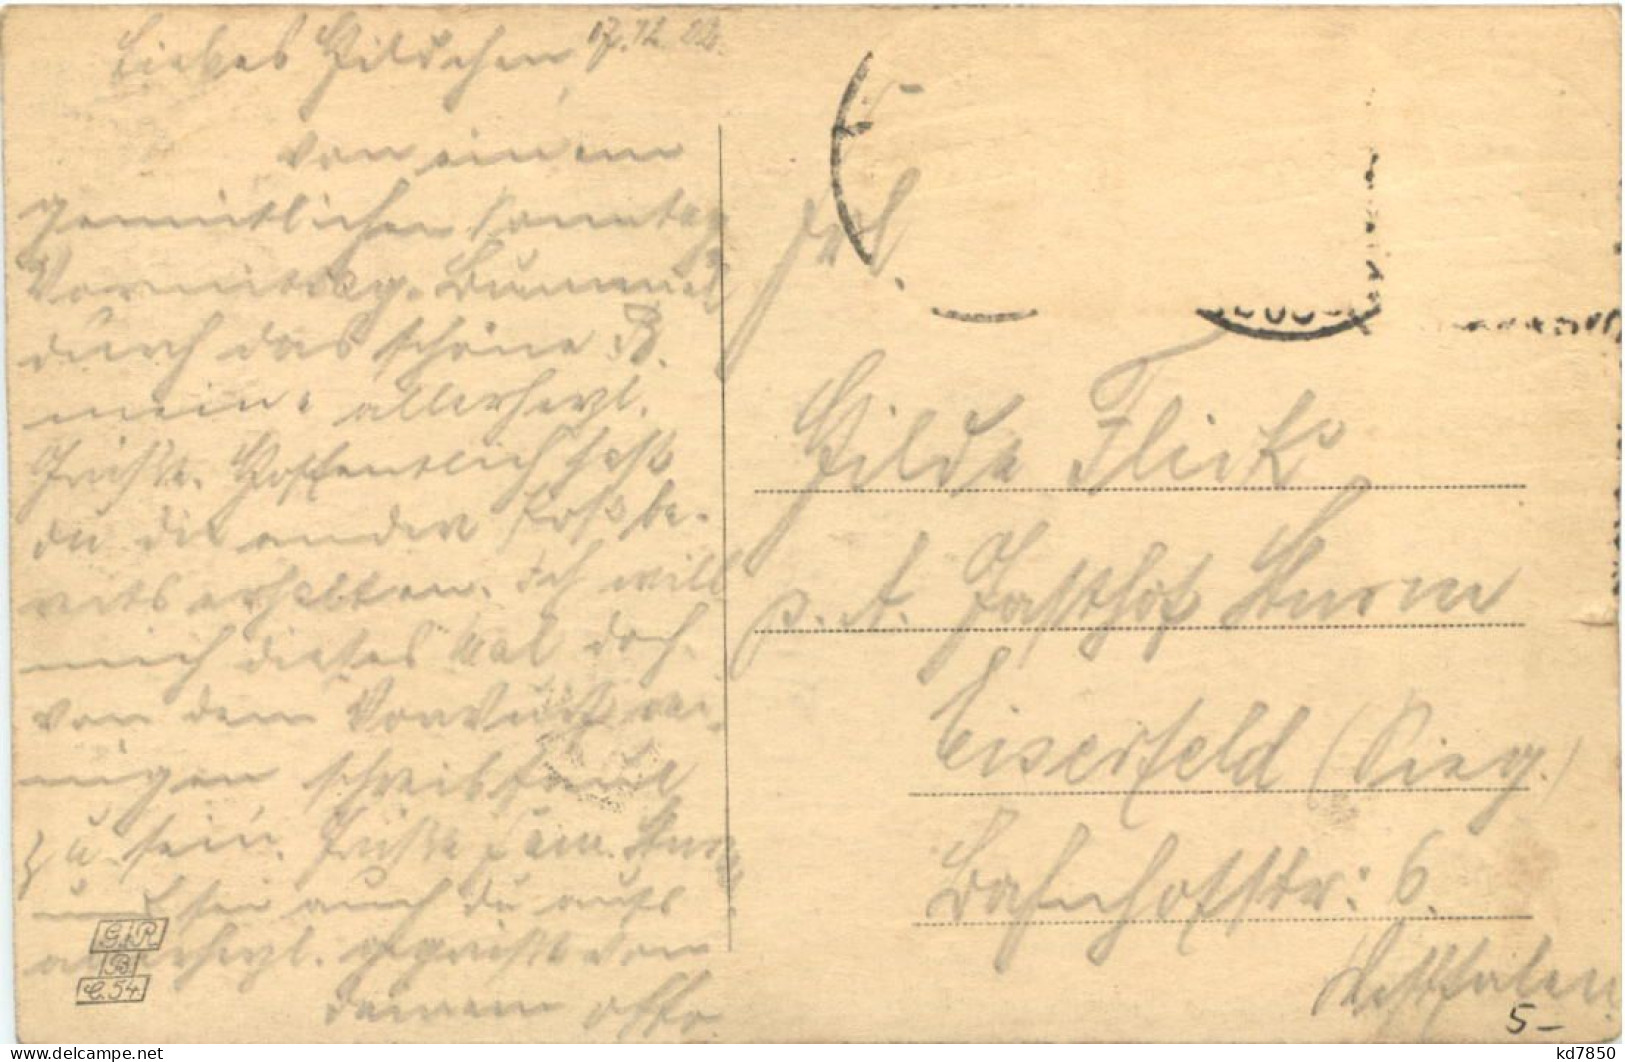 Liebes Hildchen, 17.12.22.
von einem
gemütlichen Sonntag
Vormittag-Bummel
durch das schöne B.
mein. allerherzl.
Grüße. Hoffentlich hast
du die andere Post be-
reits erhalten. Ich will
mich dieses Mal doch
von dem Vorwurf rei-
nigen schreibfaul
zu sein. Grüße Fam. Sturm
und sei auch du aufs
allerherzl. gegrüßt von
deinem Otto.
G.R.
B.
C.54.
Frl.
Hilde Flick
p. A. Gasthof Sturm
Eiserfeld (Sieg.)
Bahnhofstr: 6.
Westfalen
5-
kd7850